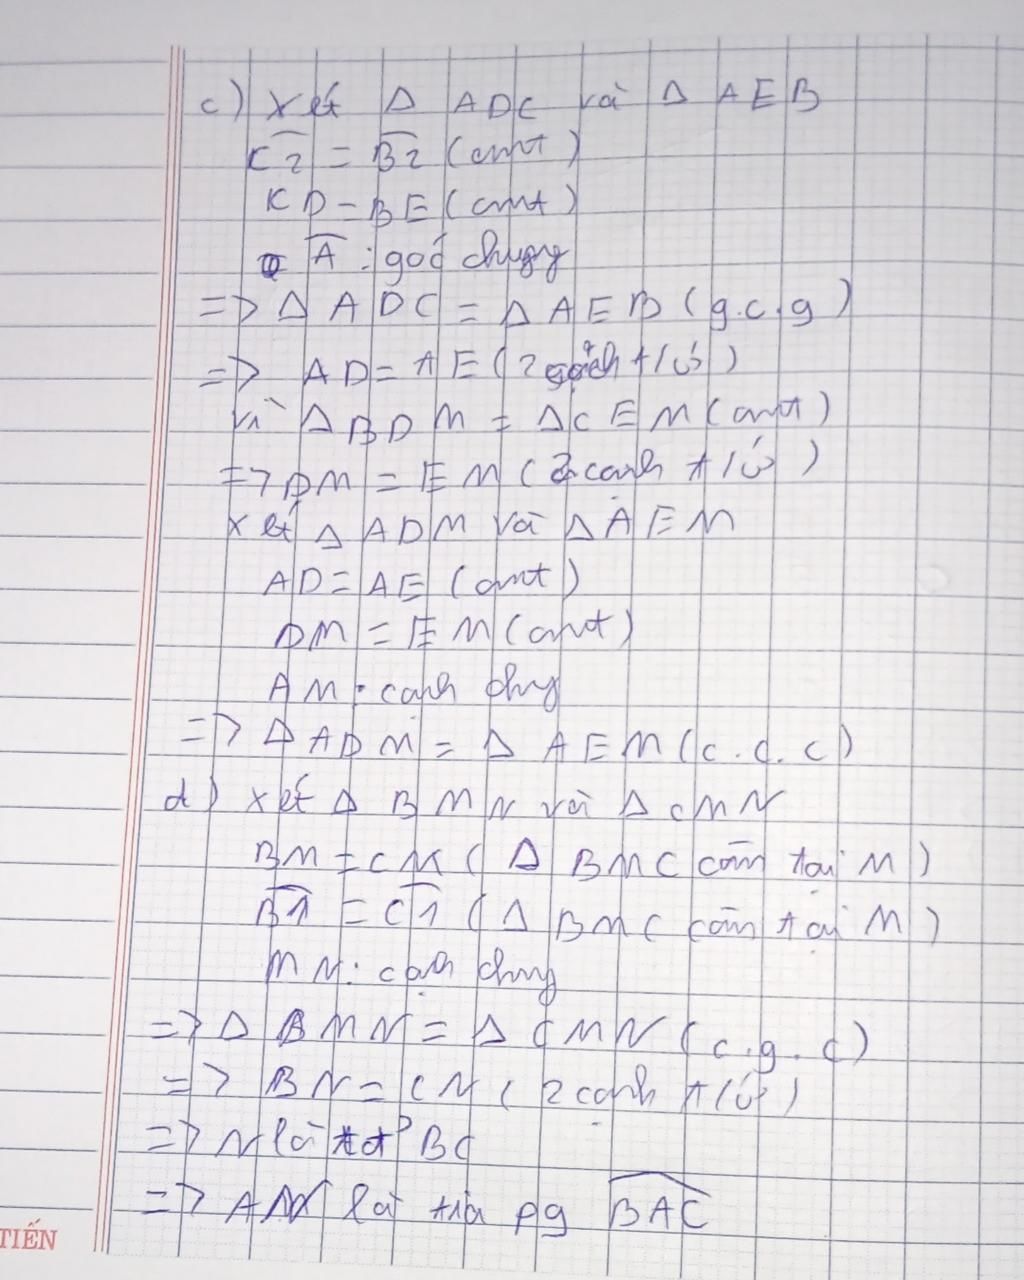 c) Xét Δ ADC và Δ AEB
C2 = B2 (cmt)
CD = BE (cmt)
A : góc chung
=> Δ ADC = Δ AEB (g.c.g)
=> AD = AE (2 cạnh t/ứ)
Vì Δ BDM = ΔCEM (cmt)
=> DM = EM (2 cạnh t/ứ)
Xét Δ ADM và Δ AEM
AD = AE (cmt)
DM = EM (cmt)
AM : cạnh chung
=> Δ ADM = Δ AEM (c.c.c)
d) Xét Δ BMN và Δ CMN
BM = CM (Δ BMC cân tại M)
B1 = C1 (Δ BMC cân tại M)
MN : cạnh chung
=> Δ BMN = Δ CMN (c.g.c)
=> BN = CN (2 cạnh t/ứ)
=> N là tđ BC
=> AN là tia pg BAC
TIẾN